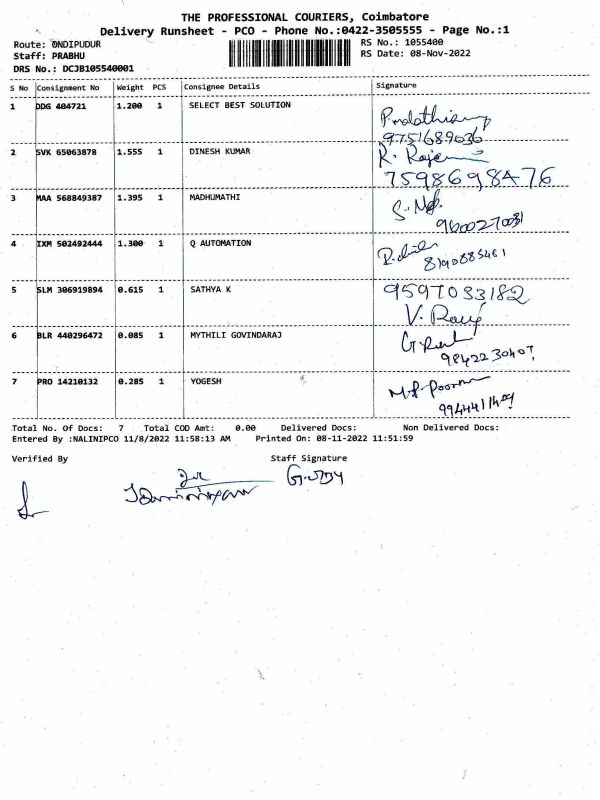 THE PROFESSIONAL COURIERS, Coimbatore
Delivery Runsheet - PCO - Phone No.:0422-3505555 - Page No.:1
Route: ONDIPUDUR RS No.: 1055400
Staff: PRABHU RS Date: 08-Nov-2022
DRS No.: DCJB105540001
S No Consignment No Weight PCS Consignee Details Signature
1 DDG 404721 1.200 1 SELECT BEST SOLUTION
9751689036
2 SVK 65063878 1.555 1 DINESH KUMAR R.
7598698476
3 MAA 568849387 1.395 1 MADHUMATHI
9600270031
4 IXM 502492444 1.300 1 Q AUTOMATION
8190885461
5 SLM 306919894 0.615 1 SATHYA K 9597033182
V.
6 BLR 440296472 0.085 1 MYTHILI GOVINDARAJ
9842230407
7 PRO 14210132 0.285 1 YOGESH
9944411409
Total No. Of Docs: 7 Total COD Amt: 0.00 Delivered Docs: Non Delivered Docs:
Entered By :NALINIPCO 11/8/2022 11:58:13 AM Printed On: 08-11-2022 11:51:59
Verified By Staff Signature